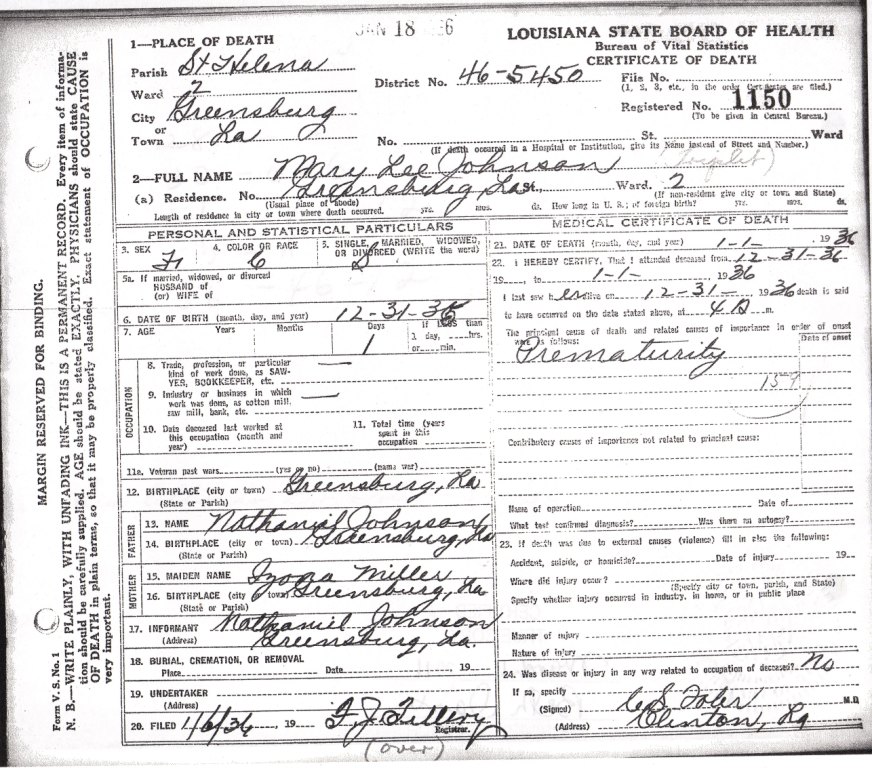 JAN 18
LOUISIANA STATE BOARD OF HEALTH
Bureau of Vital Statistics
CERTIFICATE OF DEATH
1—PLACE OF DEATH
Parish St Helena
Ward 2
City Greensburg
or
Town La
District No. 46-5450
File No.
(1, 2, 3, etc., in the order Certificates are filed.)
Registered No. 1150
(To be given in Central Bureau.)
No. St. Ward
(If death occurred in a Hospital or Institution, give its Name instead of Street and Number.)
2—FULL NAME Mary Lee Johnson (Triplet)
(a) Residence. No. Greensburg, La St., Ward. 2
(Usual place of abode) (If non-resident give city or town and State)
Length of residence in city or town where death occurred. yrs. mos. ds. How long in U. S.; of foreign birth? yrs. mos. ds.
PERSONAL AND STATISTICAL PARTICULARS
3. SEX F
4. COLOR OR RACE C
5. SINGLE, MARRIED, WIDOWED, OR DIVORCED (WRITE the word) S
5a. If married, widowed, or divorced
HUSBAND of
(or) WIFE of
6. DATE OF BIRTH (month, day, and year) 12-31-35
7. AGE Years Months Days If LESS than
1 1 day, ....hrs.
or....min.
OCCUPATION
8. Trade, profession, or particular
kind of work done, as SAW-
YER, BOOKKEEPER, etc. —
9. Industry or business in which
work was done, as cotton mill,
saw mill, bank, etc. —
10. Date deceased last worked at
this occupation (month and
year)
11. Total time (years
spent in this
occupation
11a. Veteran past wars (yes or no) (name war)
12. BIRTHPLACE (city or town) Greensburg, La
(State or Parish)
FATHER
13. NAME Nathaniel Johnson
14. BIRTHPLACE (city or town) Greensburg, La
(State or Parish)
MOTHER
15. MAIDEN NAME Miller
16. BIRTHPLACE (city or town) Greensburg, La
(State or Parish)
17. INFORMANT Nathaniel Johnson
(Address) Greensburg, La.
18. BURIAL, CREMATION, OR REMOVAL
Place Date 19
19. UNDERTAKER
(Address)
20. FILED 1/6/36, 19
Registrar.
(over)
MEDICAL CERTIFICATE OF DEATH
21. DATE OF DEATH (month, day, and year) 1-1- 1936
22. I HEREBY CERTIFY, That I attended deceased from 12-31-36
19 , to 1-1- , 1936
I last saw her alive on 12-31- 1936 death is said
to have occurred on the date stated above, at 4 A m.
The principal cause of death and related causes of importance in order of onset
were as follows: Date of onset
Prematurity
159
Contributory causes of importance not related to principal cause:
Name of operation Date of
What test confirmed diagnosis? Was there an autopsy?
23. If death was due to external causes (violence) fill in also the following:
Accident, suicide, or homicide? Date of injury 19
Where did injury occur?
(Specify city or town, parish, and State)
Specify whether injury occurred in industry, in home, or in public place
Manner of injury
Nature of injury
24. Was disease or injury in any way related to occupation of deceased? No
If so, specify
(Signed) M.D.
(Address) Clinton, La
MARGIN RESERVED FOR BINDING.
Form V. S. No. 1
N. B.—WRITE PLAINLY, WITH UNFADING INK—THIS IS A PERMANENT RECORD. Every item of informa-
tion should be carefully supplied. AGE should be stated EXACTLY. PHYSICIANS should state CAUSE
OF DEATH in plain terms, so that it may be properly classified. Exact statement of OCCUPATION is
very important.